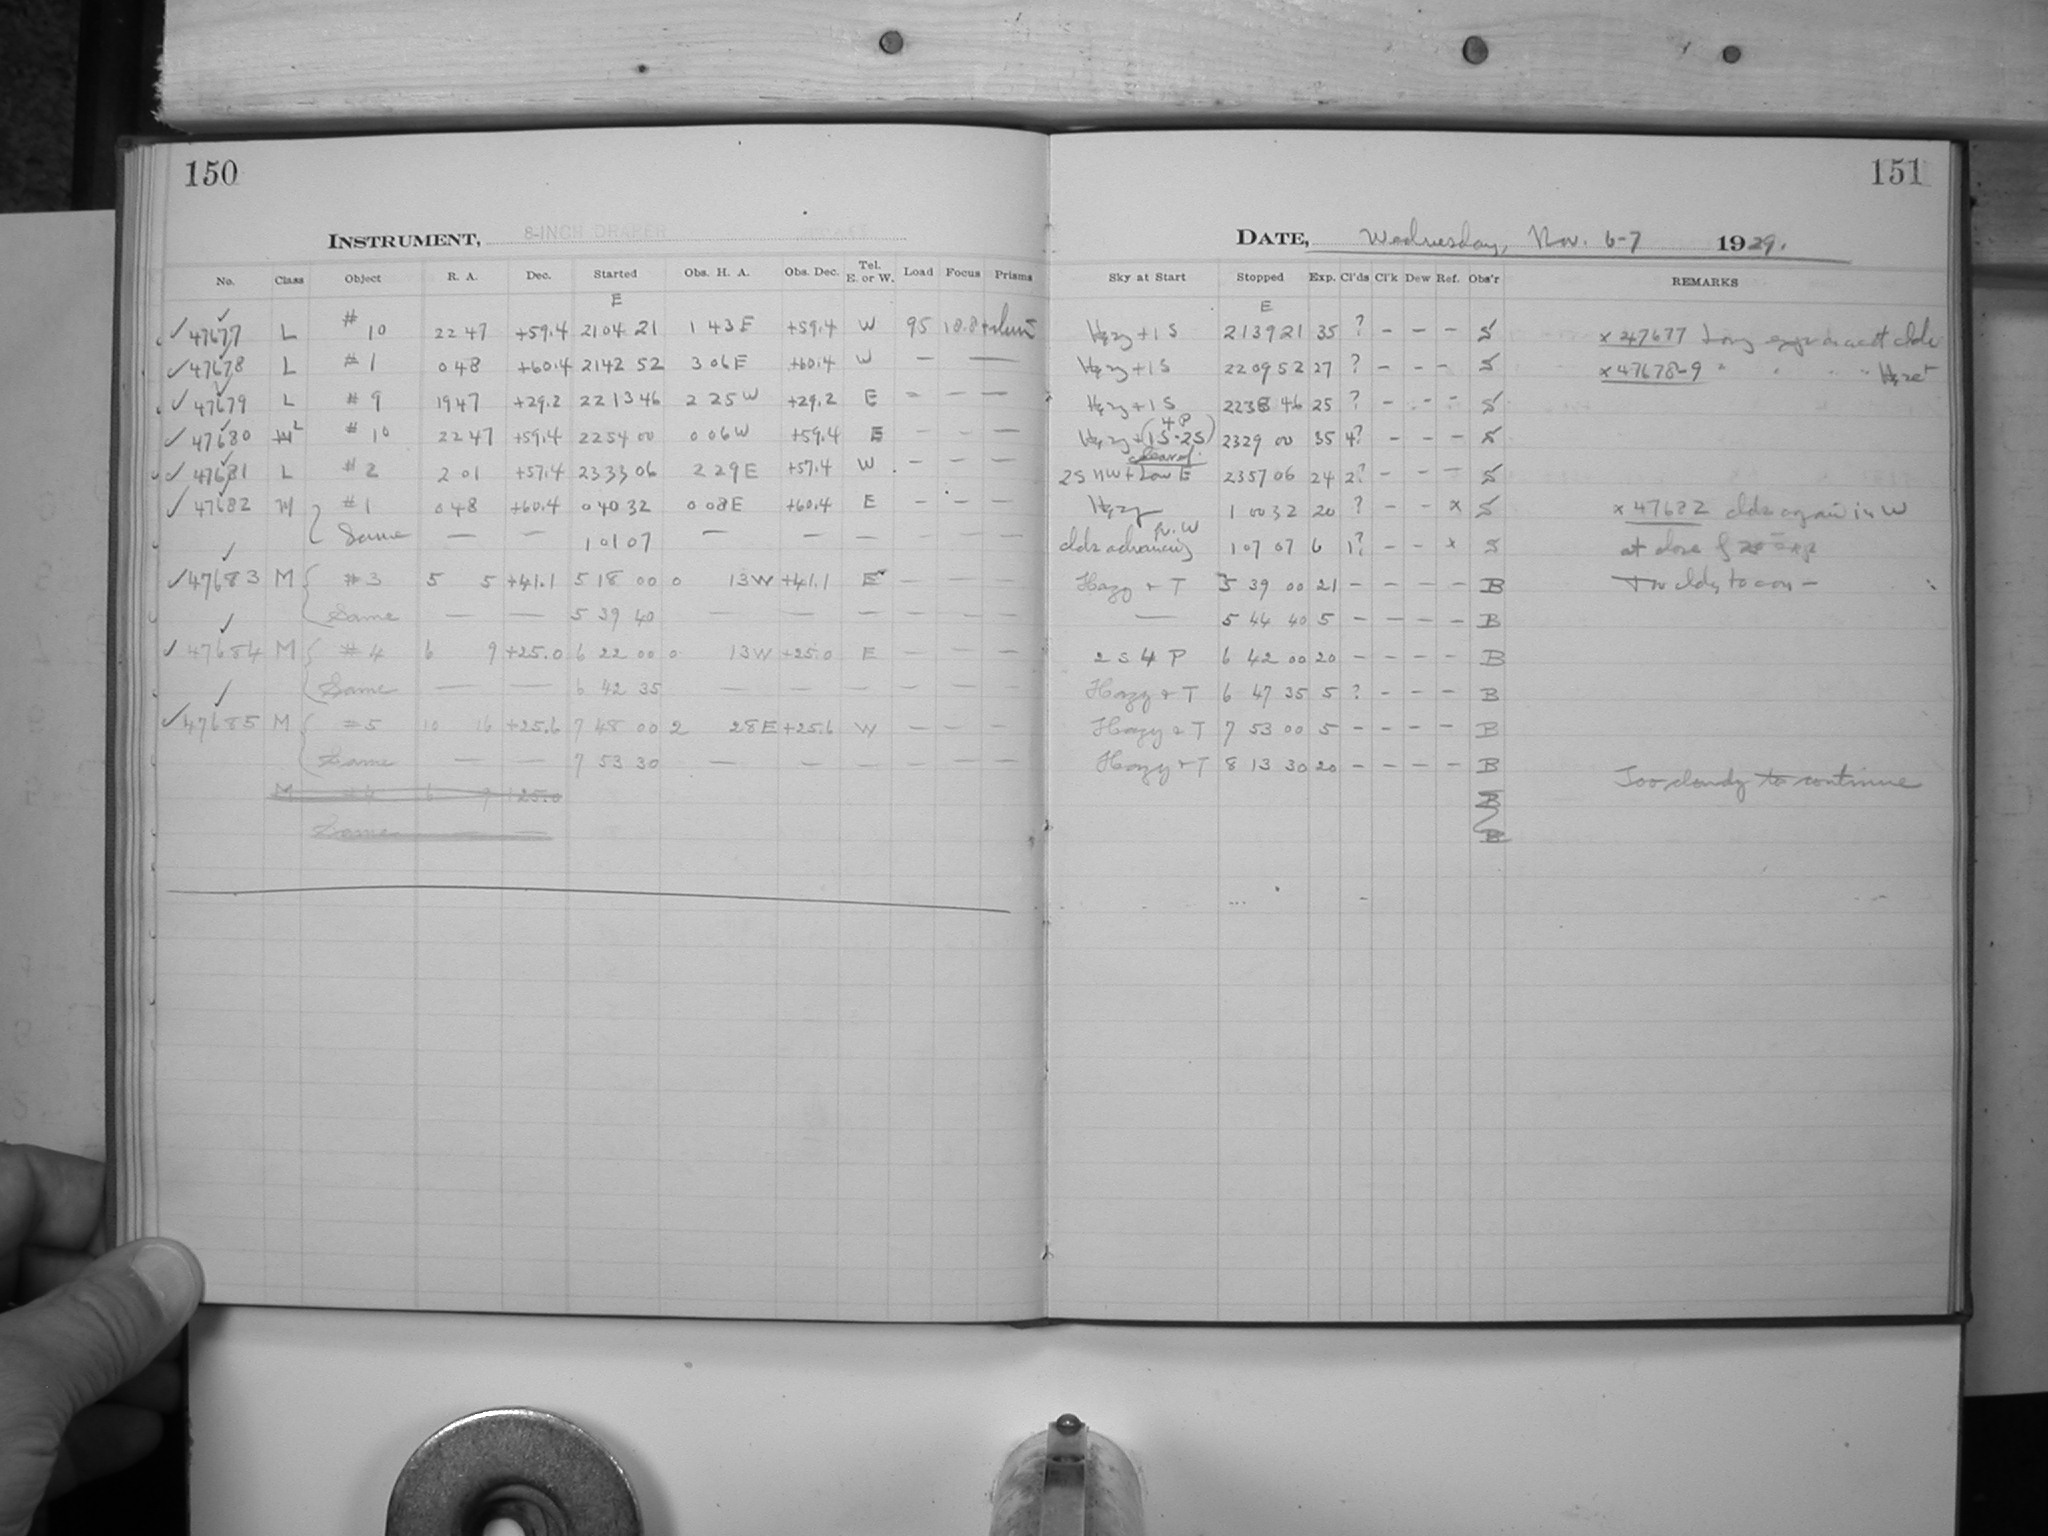 150
INSTRUMENT, 8-INCH DRAPER
No. Class Object R. A. Dec. Started Obs. H. A. Obs. Dec. Tel. E. or W. Load Focus Prisms
E
47677 L #10 22 47 +59.4 21 04 21 1 43 E +59.4 W 95
47678 L #1 0 48 +60.4 21 42 52 3 06 E +60.4 W — —
47679 L #9 19 47 +29.2 22 13 46 2 25 W +29.2 E — — —
47680 L #10 22 47 +59.4 22 54 00 0 06 W +59.4 E — — —
47681 L #2 2 01 +57.4 23 33 06 2 29 E +57.4 W — — —
47682 M #1 0 48 +60.4 0 40 32 0 08 E +60.4 E — — —
Same — — 1 01 07 — — — — — —
47683 M #3 5 5 +41.1 5 18 00 0 13 W +41.1 E — — —
Same — — 5 39 40 — — — — — —
47684 M #4 6 9 +25.0 6 22 00 0 13 W +25.0 E — — —
Same — — 6 42 35 — — — — — —
47685 M #5 10 16 +25.6 7 48 00 2 28 E +25.6 W — — —
Same — — 7 53 30 — — — — — —
M #4 6 9 +25.0
Same — —
151
DATE, Wednesday, Nov. 6-7 1929.
Sky at Start Stopped Exp. Cl'ds Cl'k Dew Ref. Obs'r REMARKS
E
Hazy + 1 S 21 39 21 35 ? — — — S x 47677 Long exp
Hazy + 1 S 22 09 52 27 ? — — — S x 47678-9 " " "
Hazy + 1 S 22 38 46 25 ? — — — S
4 P
Hazy + (1S-2S) 23 29 00 35 4? — — — S
cleared
2S NW + Low E 23 57 06 24 2? — — — S
Hazy 1 00 32 20 ? — — x S x 47682 clds again in W
clds advancing fr. W 1 07 07 6 1? — — x S at close of exp
Hazy + T 5 39 00 21 — — — — B Too cldy to con —
— 5 44 40 5 — — — — B
2 S 4 P 6 42 00 20 — — — — B
Hazy + T 6 47 35 5 ? — — — B
Hazy + T 7 53 00 5 — — — — B
Hazy + T 8 13 30 20 — — — — B Too cloudy to continue
B
B